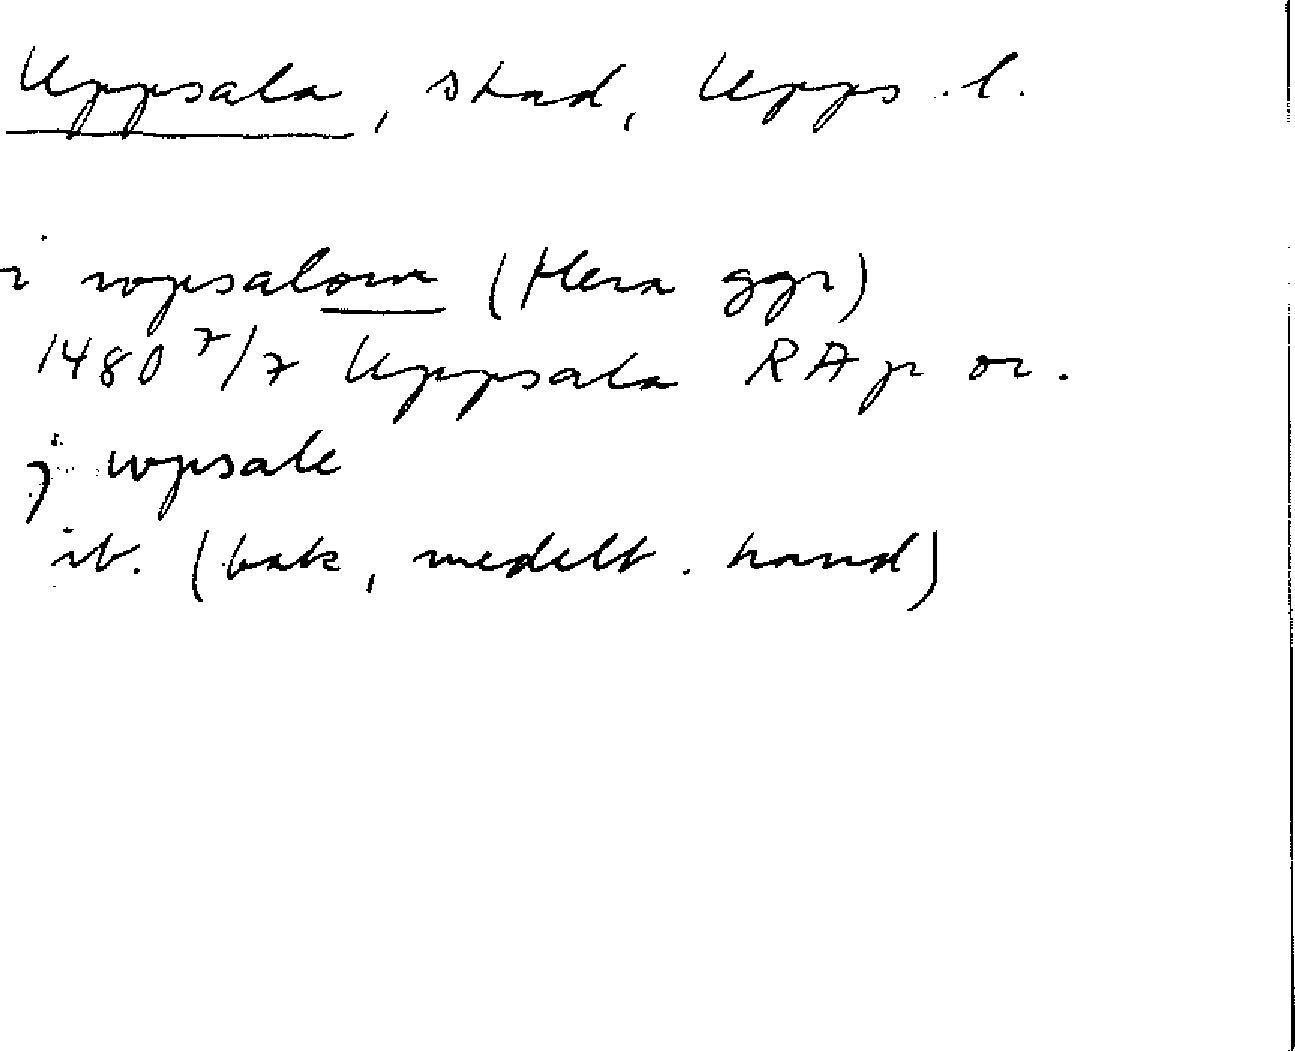 Uppsala, stad, Upps. l.
i wpsalom (flera ggr)
1480 7/7 Uppsala RAp or.
j wpsale
ib. (bak, medelt. hand)